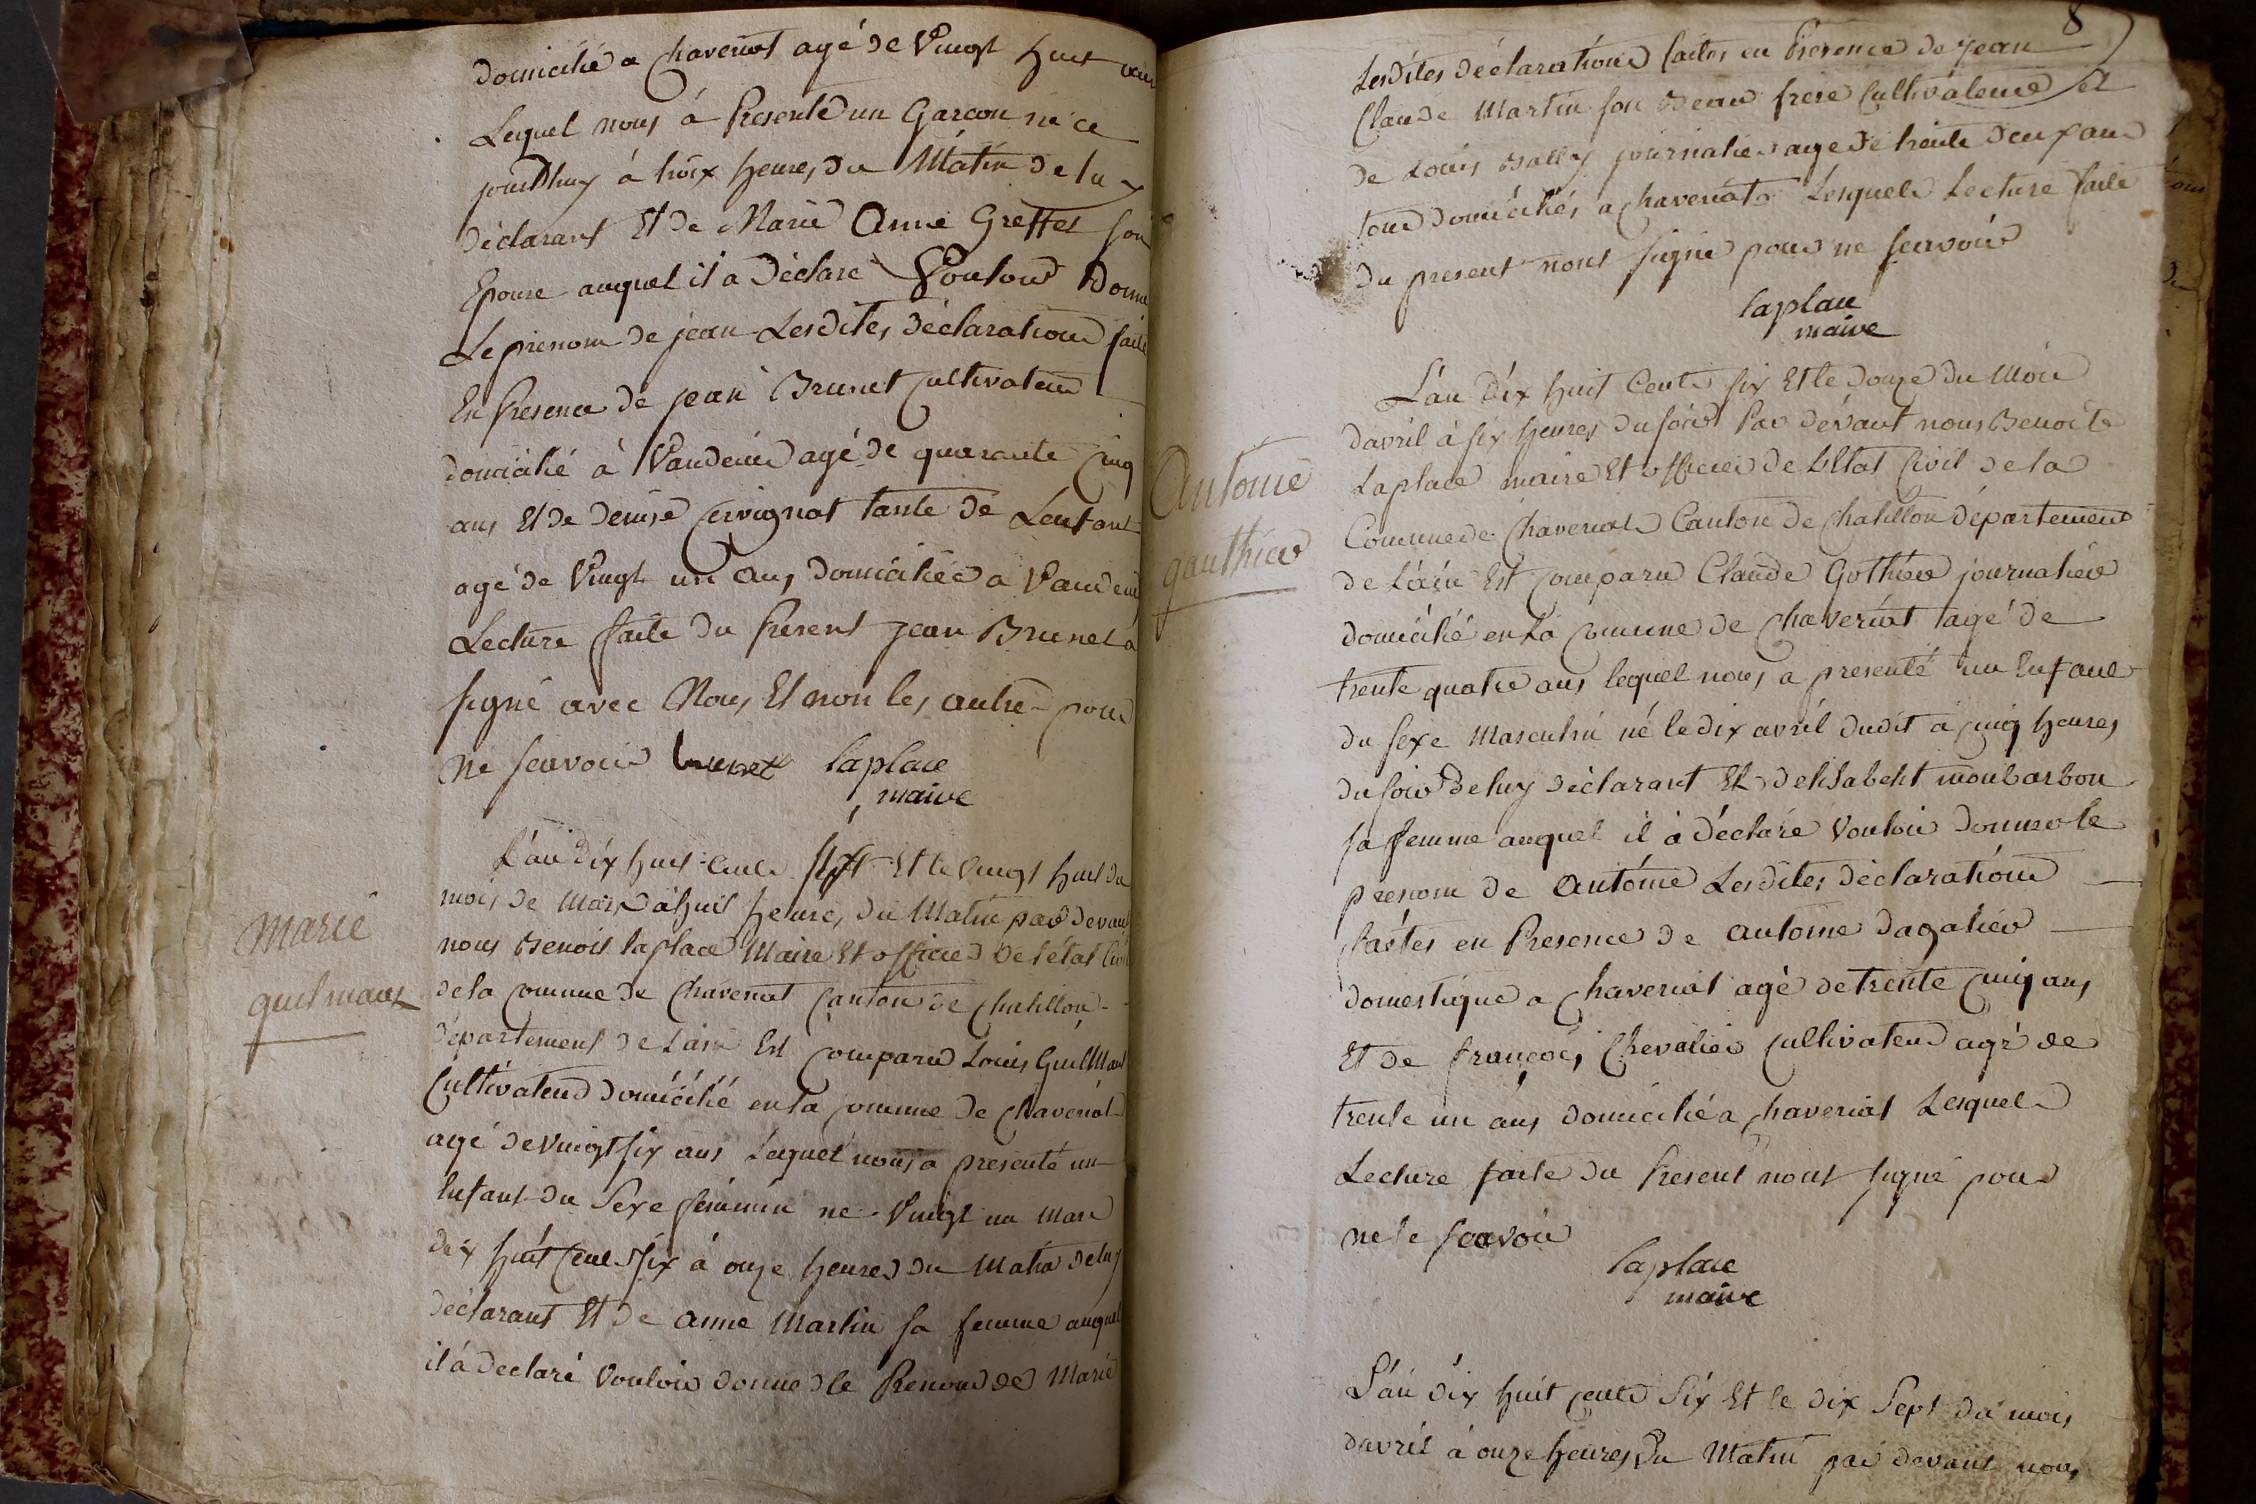 domicilié a chaveriat agé de Vingt huit ans
Lequel nous á Presenté un Garcon né ce
jourdhuy á troix heures du Matin de luy
déclarant Et de Marie Anne Greffet son
Epouse auquel il a Déclaré Vouloir Donné
Le prenom de jean Lesdites déclarations faite
En Presence de jean Brunet Cultivateur
domicilié à Vandeins agé de quarante Cinq
ans Et de denise tante de Lenfant
agé de Vingt un ans domiciliée a Vandeins
Lecture faite du Present jean Brunet a
signé avec Nous Et non les autre pour
ne scavoir brunet laplace
maire
Marie
guilmaux
L'an dix huit cent Et le vingt huit du
mois de Mars à huit heures du Matin par devant
nous Benoit laplace Maire Et officier de l'état Civil
de la commune de Chaveriat Canton de Chatillon
département de Lain Est comparu Louis Guilmaux
Cultivateur domicilié en la commune de Chaveriat
agé de vingt six ans Lequel nous a presenté un
Enfant du Sexe féminin né Vingt un Mars
dix huit Cent Six á onze heures du Matin de luy
déclarant Et de anne Martin sa femme auquel
il á declaré Vouloir donner le Prenom de Marie
8
Lesdites déclarations faites en Presence de jean
Claude Martin son Beau frere Cultivateur et
de Louis Bally journalier age de trente deux ans
tous domiciliés a chaveriat Lesquels Lecture faite
du present nont signé pour ne scavoir
laplace
maire
Antoine
gauthier
L'an dix huit Cents six Et le douze du Mois
davril à six heures du soir Par devant nous Benoit
Laplace maire Et officier de L'Etat Civil de la
Commune de Chaveriat Canton de Chatillon département
de L'ain Est comparu Claude Gothier journalier
domicilié en La commune de Chaveriat agé de
trente quatre ans lequel nous a presenté un Enfant
du sexe Masculin né le dix avril dudit a cinq heures
du soir de luy déclarant Et delisabeht monbarbon
sa femme auquel il á déclaré Vouloir donner le
prenom de Antoine Lesdites déclarations
faites en Presence de antoine dagalier
domestique a chaveriat agé de trente cinq ans
Et de francois Chevalier Cultivateur agé de
trente un ans domicilié a chaveriat Lesquels
Lecture faite du Present nont signé pour
ne le scavoir
laplace
maire
L'an dix huit cents Six Et le dix Sept du mois
davril á onze heures du Matin par devant nous